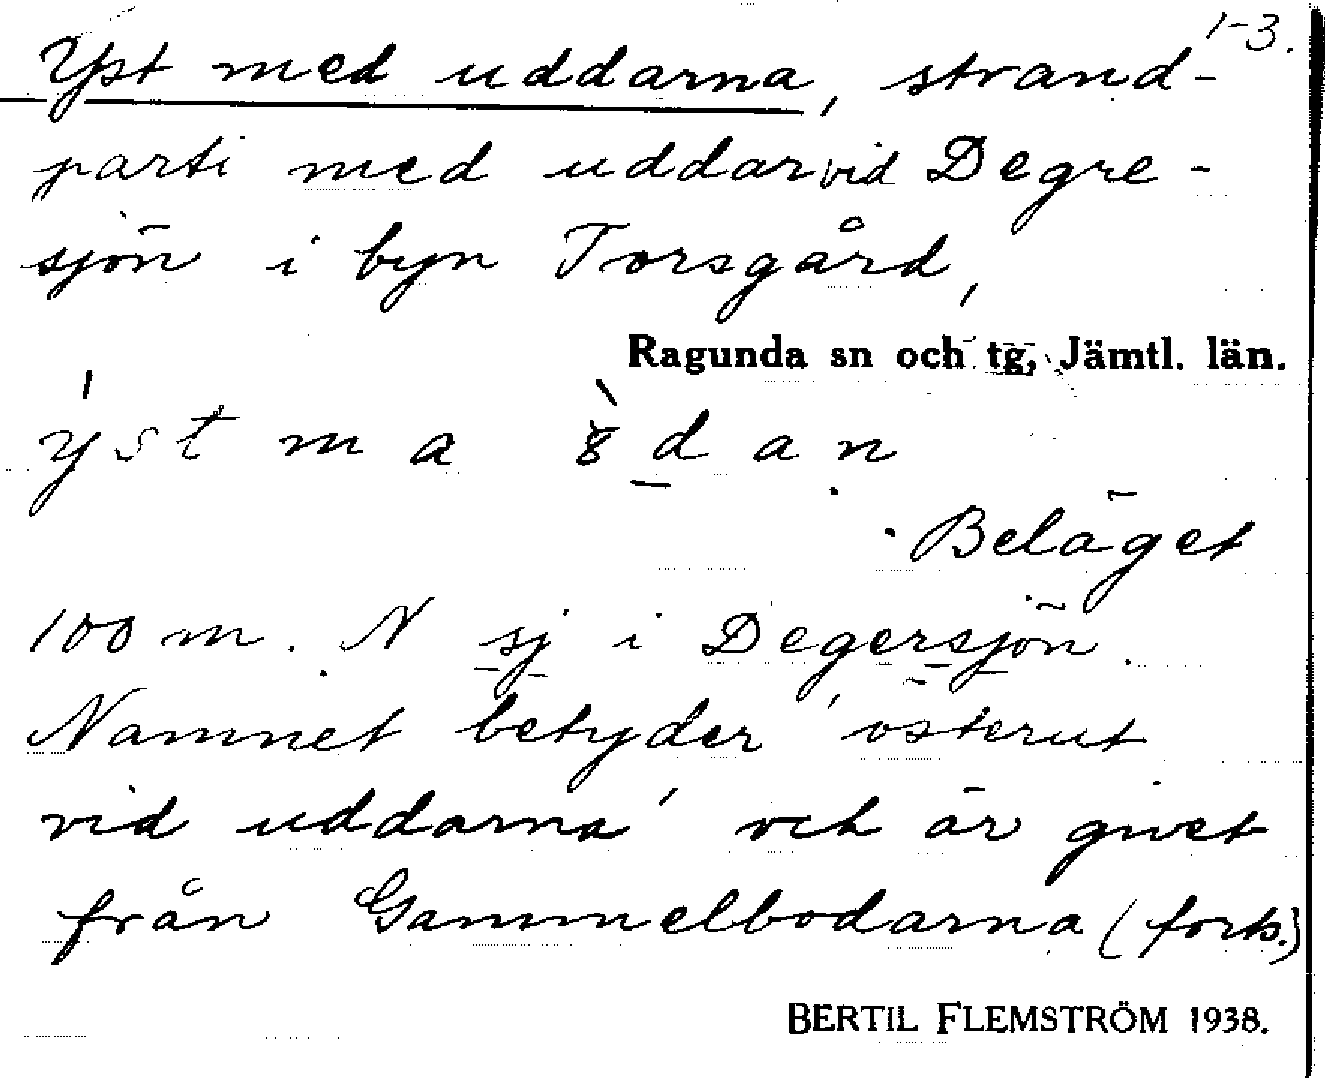 1-3.
Yst med uddarna, strand-
parti med uddar vid Degre-
sjön i byn Torsgård,
Ragunda sn och tg, Jämtl. län.
ýst ma 8̀dan
Beläget
100 m. N sj i Degersjön.
Namnet betyder 'österut
vid uddarna' och är givet
från Gammelbodarna (forts.)
BERTIL FLEMSTRÖM 1938.